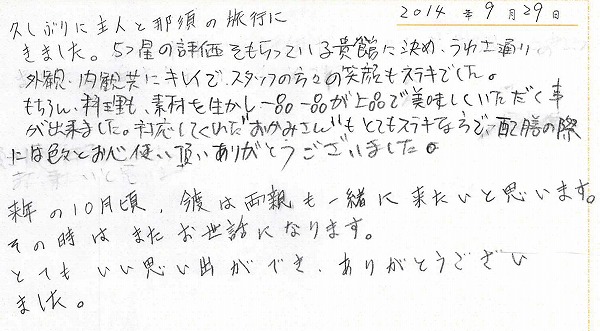 2014年9月29日
久しぶりに主人と那須の旅行に
きました。5つ星の評価をもらっている貴館に決め、うわさ通り
外観・内観共にキレイで、スタッフの方々の笑顔もステキでした。
もちろん、料理も、素材を生かし一品一品が上品で美味しくいただく事
が出来ました。対応してくれた"おかみさん"もとてもステキな方で配膳の際
には色々とお心使い頂いありがとうございました。
来年の10月頃、今度は両親も一緒に来たいと思います。
その時はまたお世話になります。
とてもいい思い出ができ、ありがとうござい
ました。